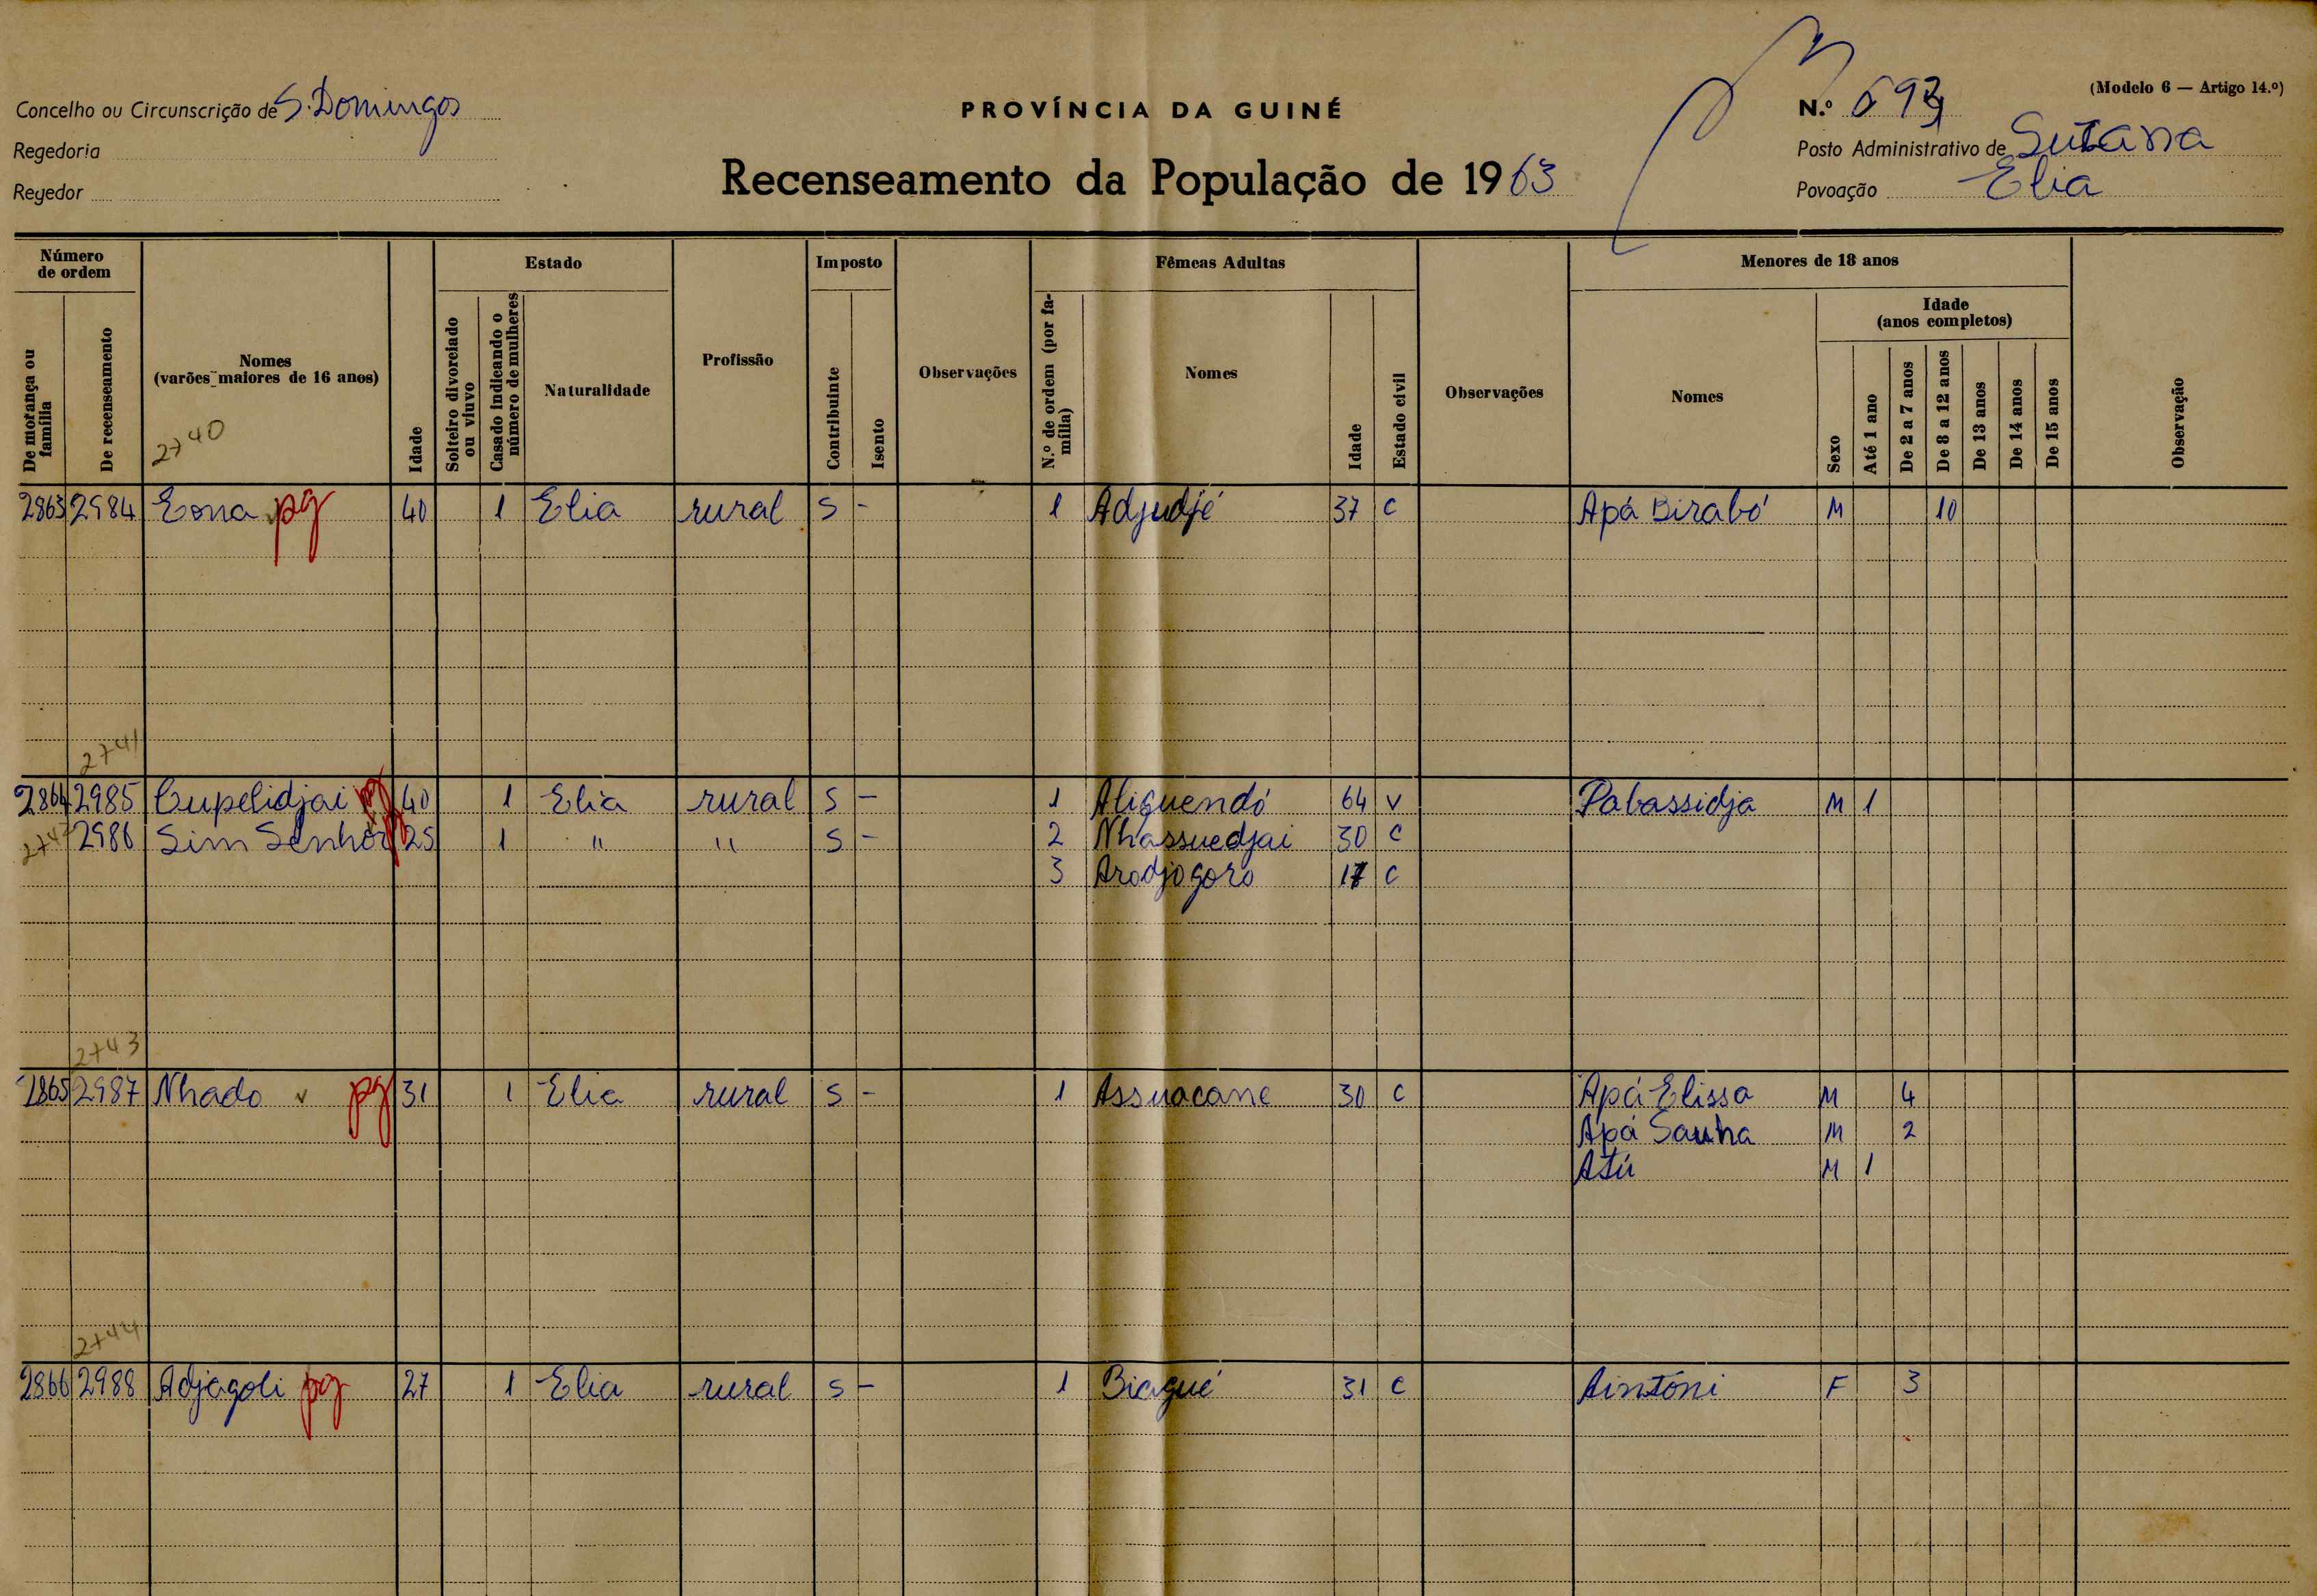 (Modelo 6 — Artigo 14.º)
Concelho ou Circunscrição de S. Domingos
PROVÍNCIA DA GUINÉ
N.º
Regedoria
Posto Administrativo de Suzana
Recenseamento da População de 1963
Regedor
Povoação Elia
Número de ordem
Estado
Imposto
Fêmeas Adultas
Menores de 18 anos
Idade (anos completos)
De morança ou família
De recenseamento
Nomes (varões maiores de 16 anos)
Idade
Solteiro divorciado ou viuvo
Casado indicando o número de mulheres
Naturalidade
Profissão
Contribuinte
Isento
Observações
N.º de ordem (por família)
Nomes
Idade
Estado civil
Observações
Nomes
Sexo
Até 1 ano
De 2 a 7 anos
De 8 a 12 anos
De 13 anos
De 14 anos
De 15 anos
Observação
2740
2863 2984 Eona pg 40 1 Elia rural S - 1 Adjudjé 37 C Apá Birabó M 10
2741
2864 2985 Cupelidjai pg 40 1 Elia rural S - 1 Aliguendó 64 V Pabassidja M 1
2742 2986 Sim Senhor 25 1 " " S - 2 Nhassuedjai 30 C
3 Arodjogoro 17 C
2743
2865 2987 Nhado v pg 31 1 Elia rural S - 1 Assuacane 30 C Apá Elissa M 4
Apá Sauha M 2
Atú M 1
2744
2866 2988 Adjagoli pg 27 1 Elia rural S - 1 Biagué 31 C Aintóni F 3